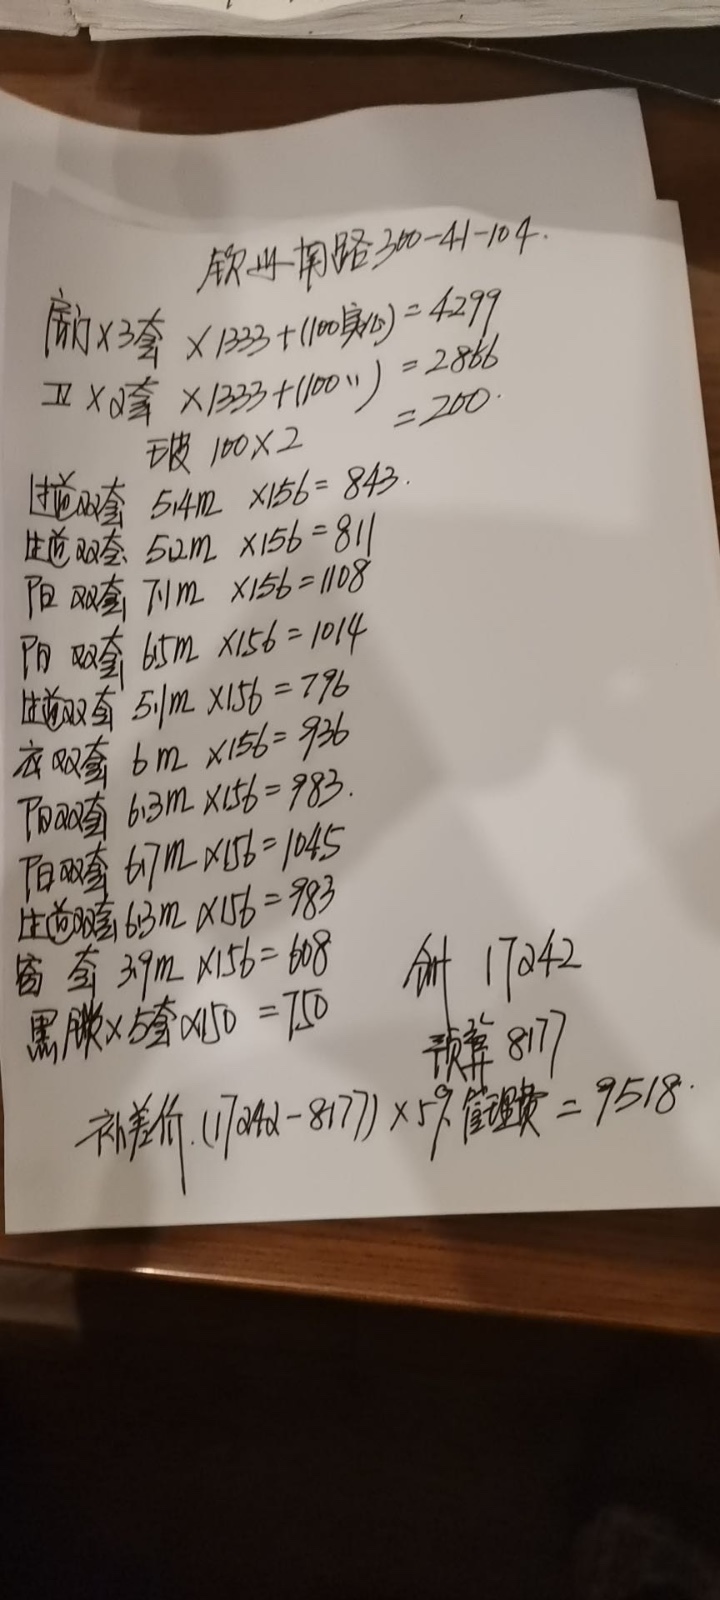 钦州南路300-41-104.
房门×3套 ×1333+(100实心)=4299
卫×2套 ×1333+(100〃)=2866
玻 100×2 =200.
过道双套 5.4m ×156=843.
过道双套 5.2m ×156=811
阳 双套 7.1m ×156=1108
阳 双套 6.5m ×156=1014
过道双套 5.1m ×156=796
衣双套 6m ×156=936
阳双套 6.3m ×156=983.
阳双套 6.7m ×156=1045
过道双套 6.3m ×156=983
窗 套 3.9m ×156=608
合计 17242
黑 ×5套×150 =750
预算 8177
补差价.(17242-8177)×5%管理费=9518.